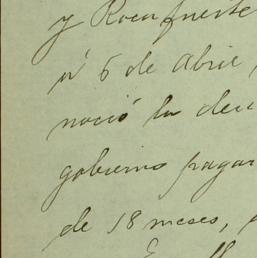 y Rocafuerte
á 6 de Abril,
noció la deu
gobierno pagar
de 18 meses,